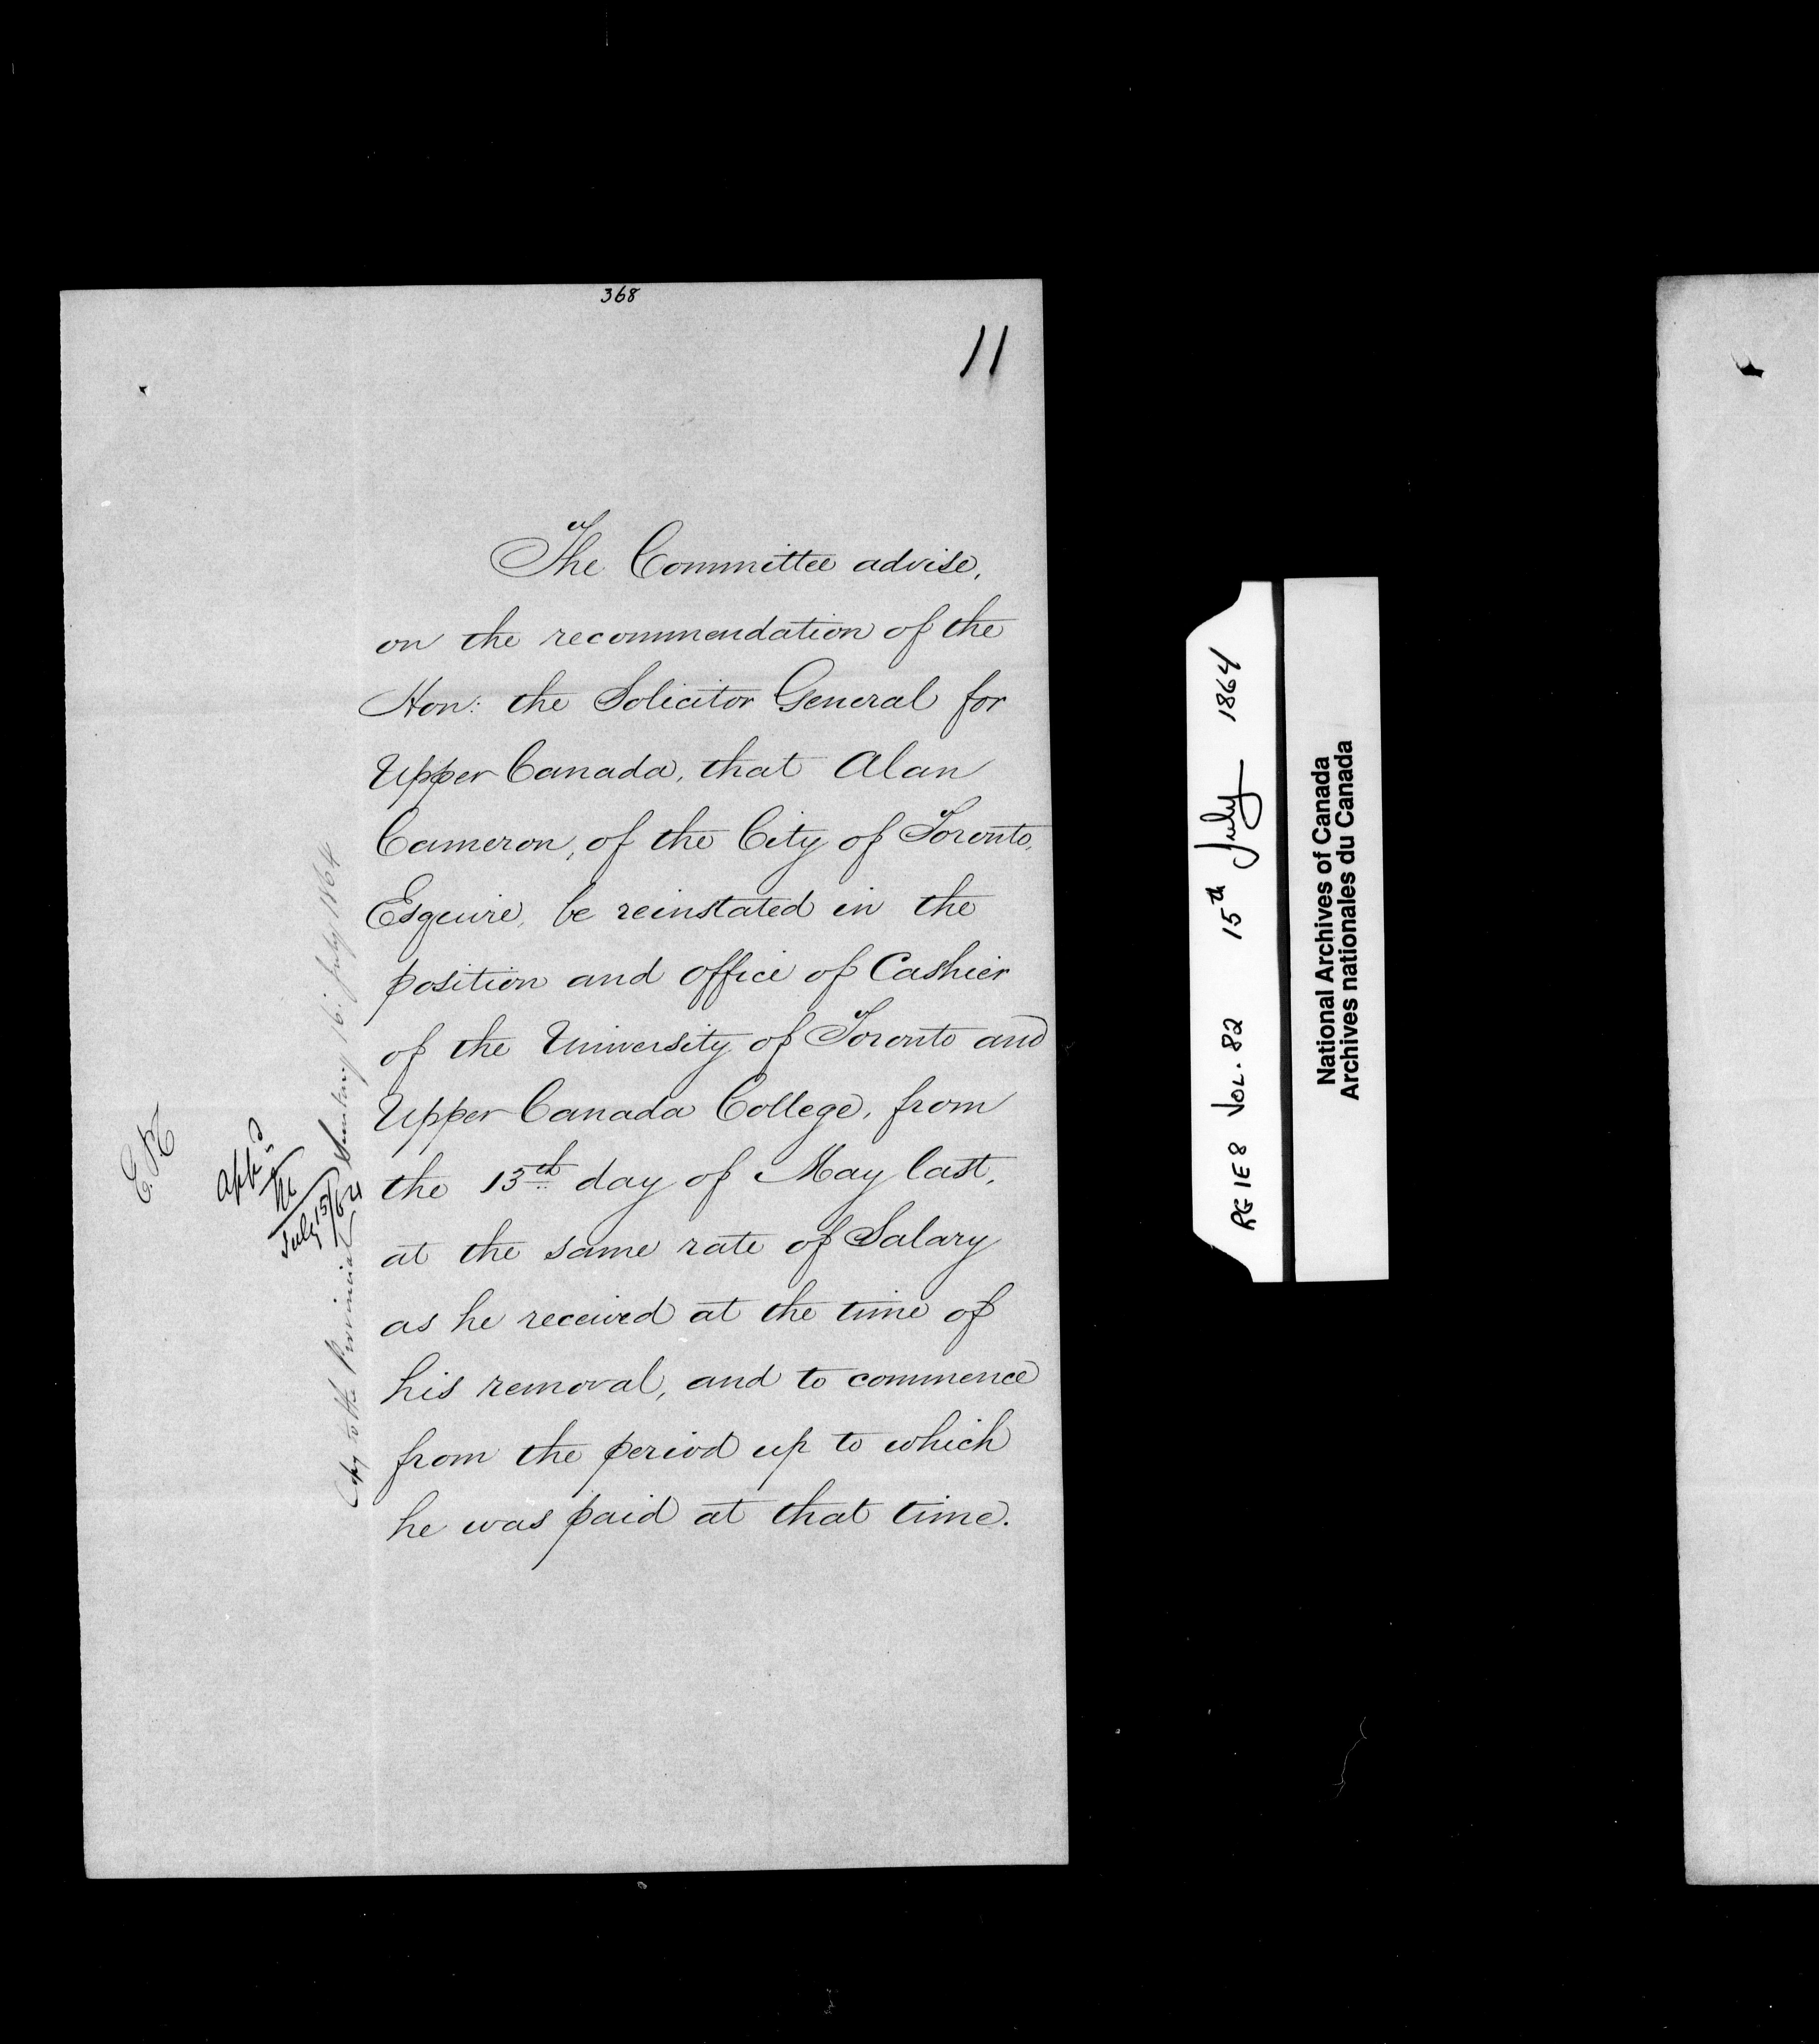 368
11
The Committee advise,
on the recommendation of the
Hon: the Solicitor General for
Upper Canada, that Alan
Cameron, of the City of Toronto,
Esquire, be reinstated in the
position and office of Cashier
of the University of Toronto and
Upper Canada College, from
the 13th day of May last,
at the same rate of Salary
as he received at the time of
his removal, and to commence
from the period up to which
he was paid at that time.
Copy to the Provincial Secretary 16: July 1864
Appd
July 15/64
RG 1E8 VOL. 82 15th July 1864
National Archives of Canada
Archives nationales du Canada